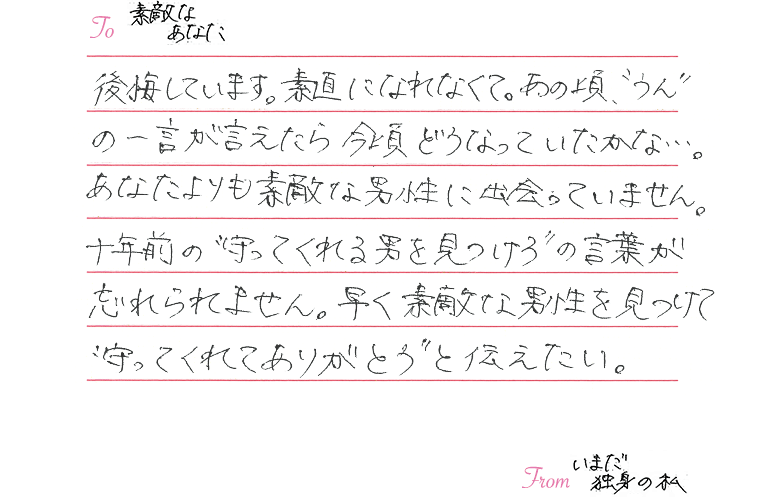 To 素敵な
あなたに
後悔しています。素直になれなくて。あの頃、“うん”
の一言が言えたら今頃どうなっていたかな…。
あなたよりも素敵な男性に出会っていません。
十年前の“守ってくれる男を見つけろ”の言葉が
忘れられません。早く素敵な男性を見つけて
“守ってくれてありがとう”と伝えたい。
From いまだ
独身の私